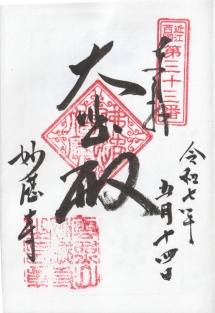 近江西国第三十三番
奉拝
大悲殿
令和七年
五月十四日
妙感寺